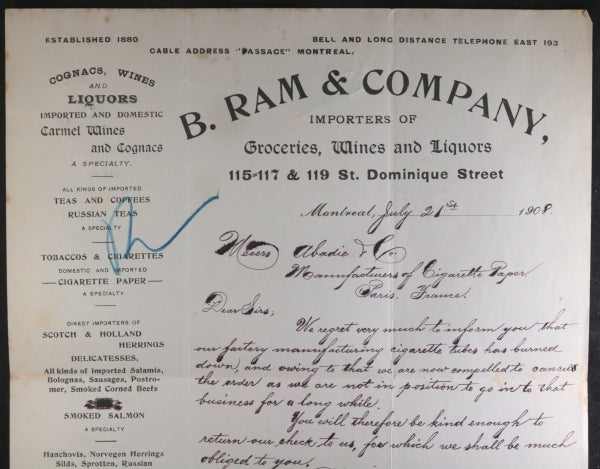 ESTABLISHED 1880
BELL AND LONG DISTANCE TELEPHONE EAST 193
CABLE ADDRESS "PASSAGE" MONTREAL.
COGNACS, WINES
AND
LIQUORS
IMPORTED AND DOMESTIC
Carmel Wines
and Cognacs
A SPECIALTY.
ALL KINDS OF IMPORTED
TEAS AND COFFEES
RUSSIAN TEAS
A SPECIALTY
TOBACCOS & CIGARETTES
DOMESTIC AND IMPORTED
CIGARETTE PAPER
A SPECIALTY
DIRECT IMPORTERS OF
SCOTCH & HOLLAND
HERRINGS
DELICATESSES,
All kinds of imported Salamis,
Bolognas, Sausages, Postro-
mer, Smoked Corned Beefs
SMOKED SALMON
A SPECIALTY
Hanchovis, Norvegen Herrings
Silds, Sprotten, Russian
B. RAM & COMPANY,
IMPORTERS OF
Groceries, Wines and Liquors
115-117 & 119 St. Dominique Street
Montreal, July 21st 1908.
Messrs Abadie & Co.
Manufacturers of Cigarette Paper
Paris. France.
Dear Sirs;
We regret very much to inform you that
our factory manufacturing cigarette tubes has burned
down, and owing to that we are now compelled to cancel
the order as we are not in position to go in to that
business for a long while.
You will therefore be kind enough to
return our check to us, for which we shall be much
obliged to you.